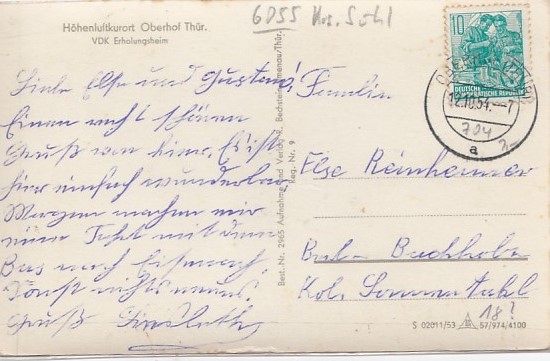 6055 Krs. Suhl
Höhenluftkurort Oberhof Thür.
VDK Erholungsheim
10
DEUTSCHE
DEMOKRATISCHE REPUBLIK
12.10.54.--7
a
704
Liebe Else und Gustav!
Einen recht schönen
Gruß von hier. Es ist
hier einfach wunderbar.
Morgen machen wir
eine Fahrt mit dem
Bus nach Eisenach.
Sonst nichts neues.
Gruß
Best. Nr. 2965 Aufnahme und Verlag R. Bechstein, Ilmenau/Thür.
Reg. Nr. 9
Familie
Else Reinheimer
Berlin Buchholz
Kol.
18?
S 02011/53 57/974/4100